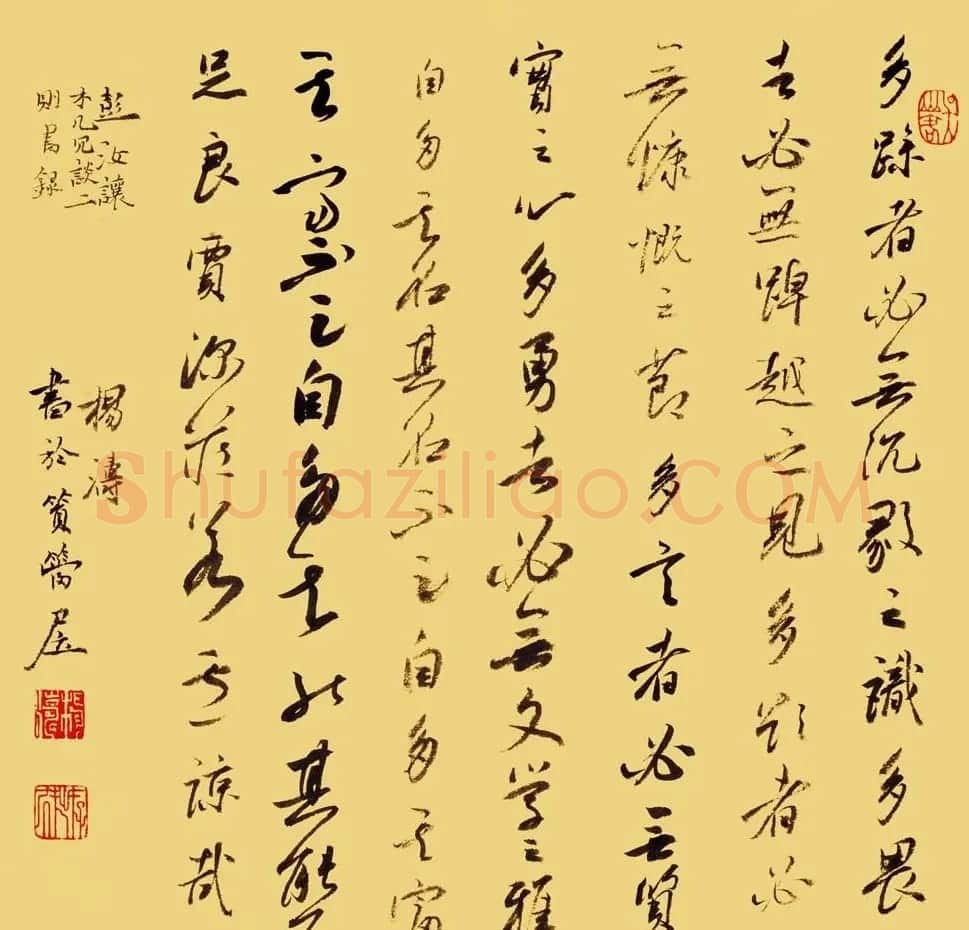 多躁者必無沉毅之識多畏
者必無踔越之見多欲者必
無慷慨之節多言者必無質
實之心多勇者必無文學之雅
自多其名其名不足自多其富
其富不足自多其能其能不
足良賈深藏若虛諒哉
彭汝讓
木几冗談二
則錄
楊濤
書於篔簹居
楊濤
Shufaziliao.COM